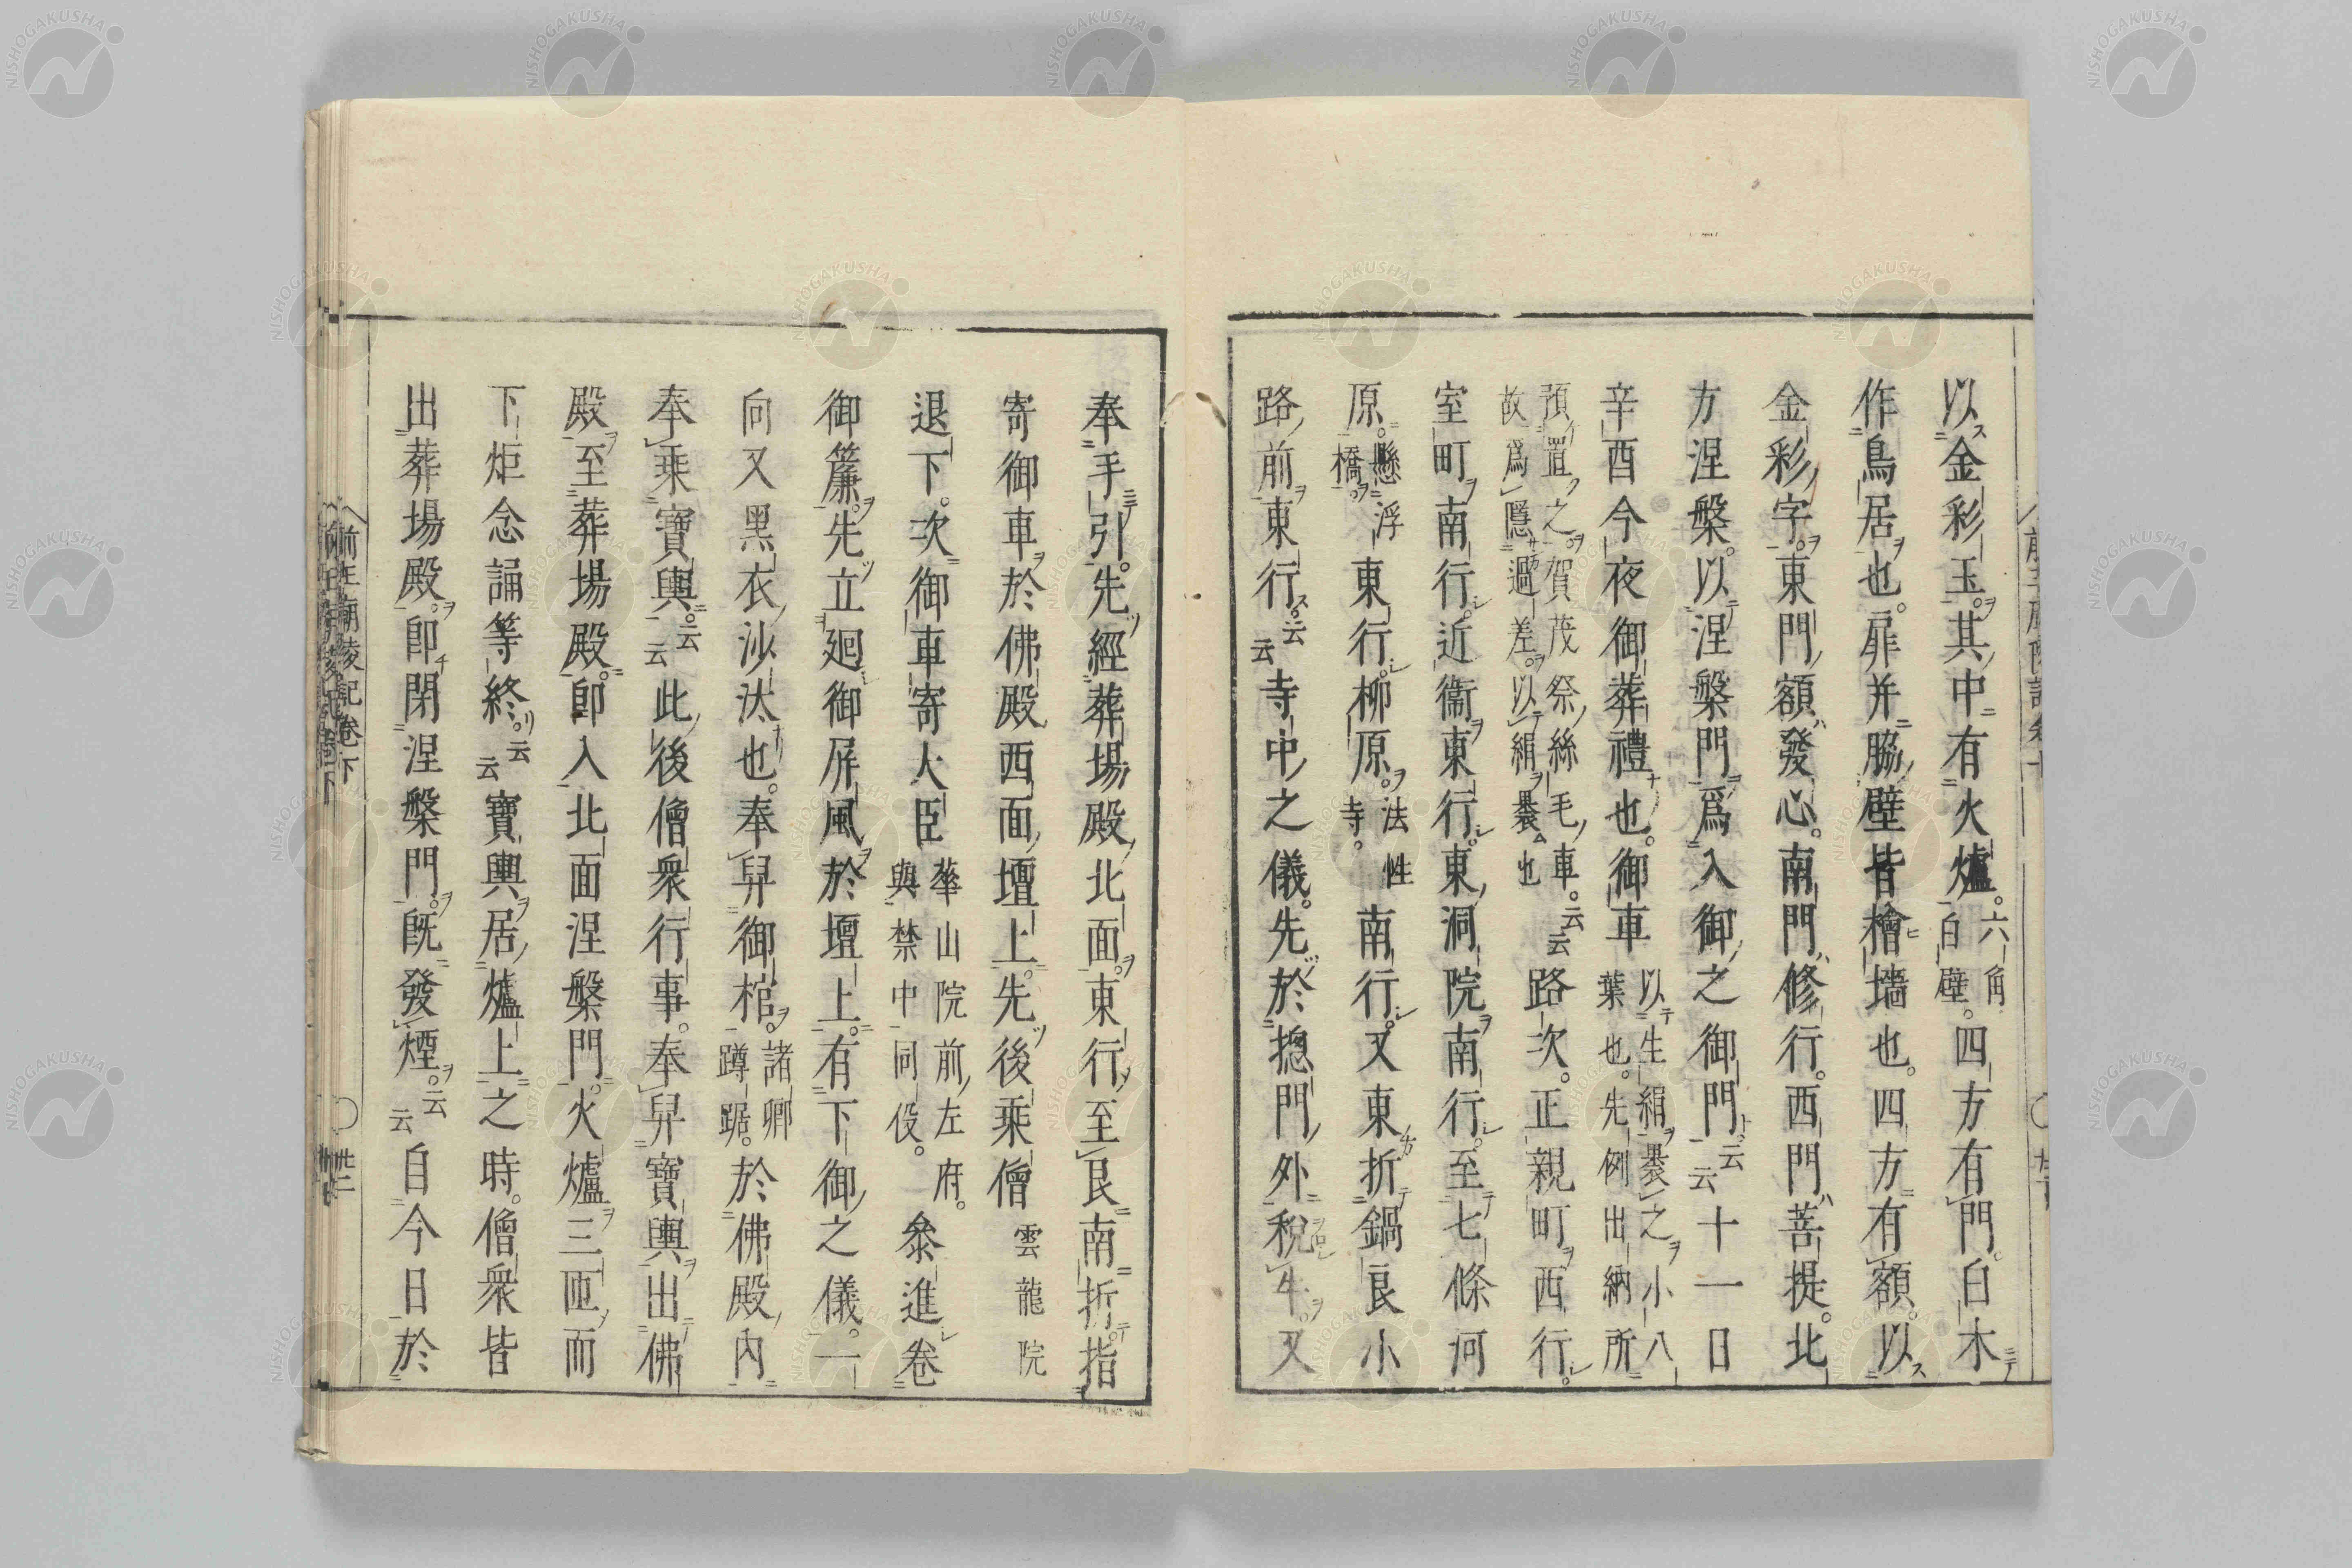 以金彩玉。其中有火爐。六角白壁。四方有門。白木
作鳥居也。扉并脇壁皆檜墻也。四方有額。以
金彩字。東門額發心。南門修行。西門菩提。北
方涅槃。以涅槃門爲入御之御門。云云十一日
辛酉今夜御葬禮也。御車以生絹裹之小八葉也。先例出納所
預置之。賀茂祭絲毛車。云云故爲隱過差。以絹裹也路次。正親町西行。
室町南行。近衞東行。東洞院南行。至七條河
原。懸浮橋。東行。柳原。法性寺。南行。又東折鍋良小
路前東行。云云寺中之儀。先於摠門外税牛。又
奉手引。先經葬場殿北面。東行。至艮南折。指
寄御車於佛殿西面壇上。先後乘僧雲龍院
退下。次御車寄大臣華山院前左府。與禁中同役。參進。卷
御簾。先立廻御屏風於壇上。有下御之儀。一
向又黑衣沙汰也。奉舁御棺。諸卿蹲踞。於佛殿內
奉乘寶輿。云云此後僧衆行事。奉舁寶輿出佛
殿。至葬場殿。卽入北面涅槃門。火爐三匝。而
下炬念誦等終。云云寶輿居爐上之時。僧衆皆
出葬場殿。卽閉涅槃門。旣發煙。云云自今日於
前王廟陵記卷下
〇
廿二